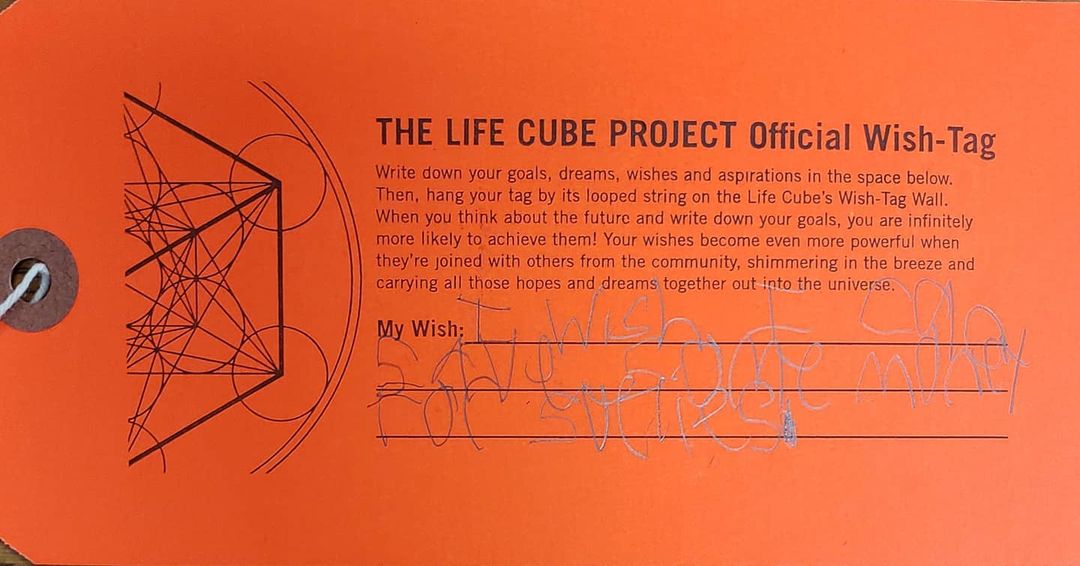 THE LIFE CUBE PROJECT Official Wish-Tag
Write down your goals, dreams, wishes and aspirations in the space below.
Then, hang your tag by its looped string on the Life Cube's Wish-Tag Wall.
When you think about the future and write down your goals, you are infinitely
more likely to achieve them! Your wishes become even more powerful when
they're joined with others from the community, shimmering in the breeze and
carrying all those hopes and dreams together out into the universe.
My Wish: I wish I
save money
For